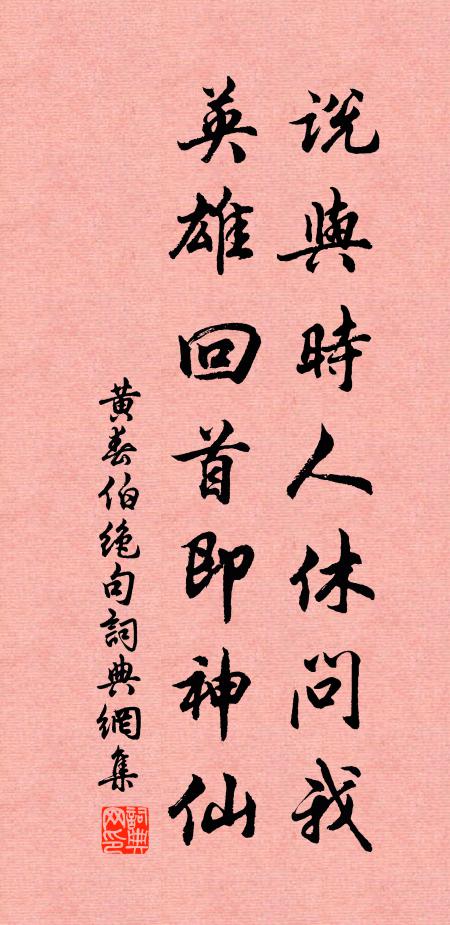 說與時人休問我
英雄回首即神仙
黃春伯絶句詞典網集
詞典
网印